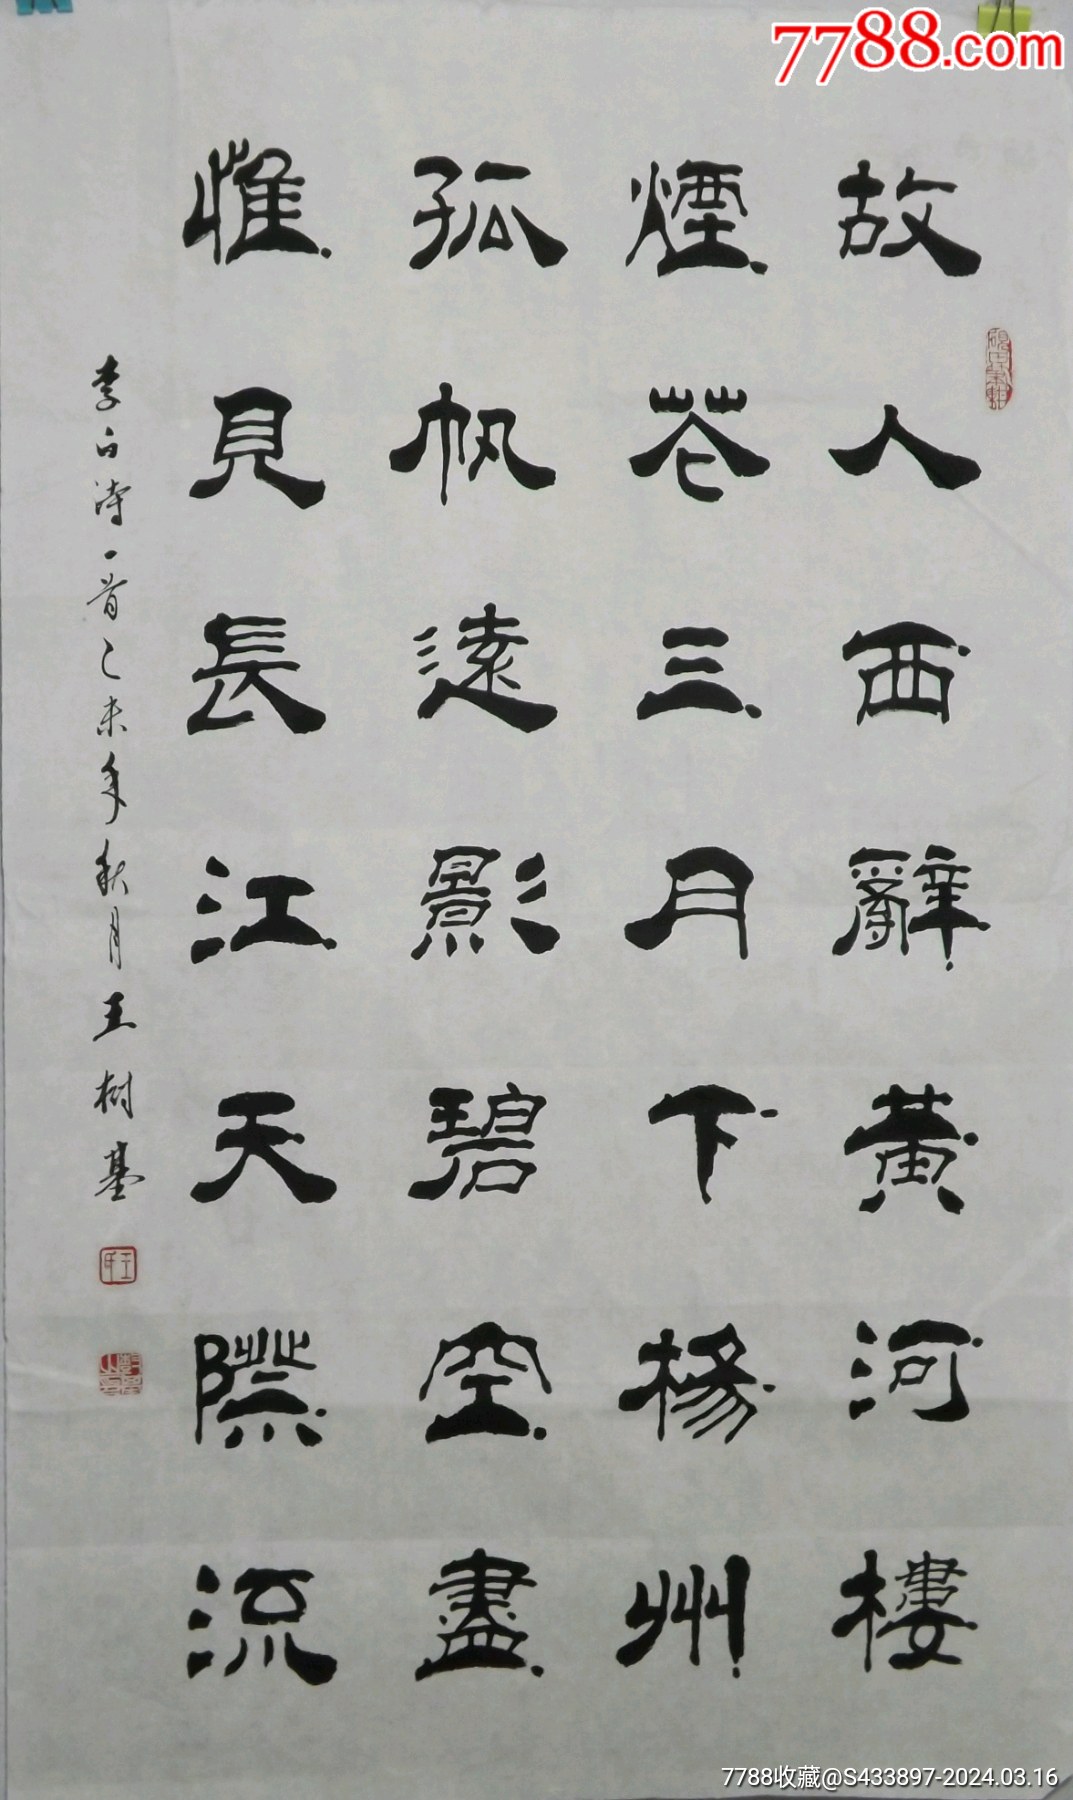 7788.com
故人西辭黃河樓
煙花三月下楊州
孤帆遠影碧空盡
惟見長江天際流
李白詩一首乙未年秋月王树基
王氏
7788收藏@S433897-2024.03.16